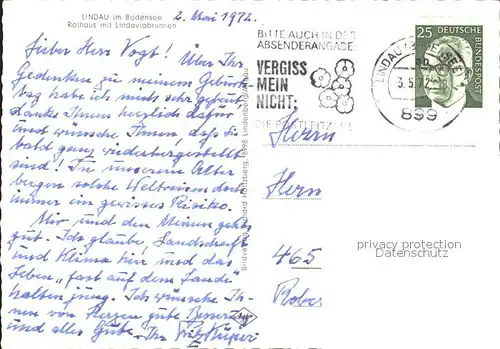 LINDAU im Bodensee
Rathaus mit Lindaviabrunnen
2. Mai 1972.
Lieber Herr Vogt! Über Ihr
Gedenken zu meinem Geburts-
tag habe ich mich sehr gefreut.
Danke Ihnen herzlich dafür
und wünsche Ihnen, daß Sie
bald ganz wiederhergestellt
sind! In unserem Alter
bergen solche Weltreisen doch
immer ein gewisses Risiko.
Mir und den Meinen geht's
gut. Ich glaube, Landschaft
und Klima hier und das
Leben „fast auf dem Lande"
halten jung. Ich wünsche Ih-
nen von Herzen gute Besserung
und alles Gute. Ihr Fritz Küper
BITTE AUCH IN DER
ABSENDERANGABE:
VERGISS
-MEIN
NICHT:
DIE POSTLEITZAHL
LINDAU (BODENSEE)
3.5.72
899
25
DEUTSCHE
BUNDESPOST
Herrn
Herrn
465
privacy protection
Datenschutz
8998 Lindenberg/Allgäu